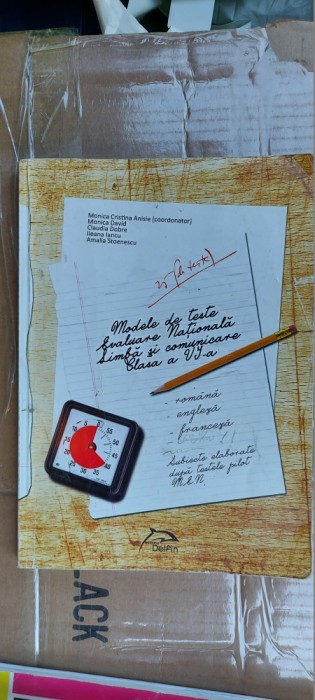 Monica Cristina Anisie (coordonator)
Monica David
Claudia Dobre
Ileana Iancu
Amalia Stoenescu
25 (de teste)
Modele de teste
Evaluare Națională
Limbă și comunicare
Clasa a VI-a
- română
- engleză
- franceză
Subiecte elaborate
după testele pilot
M.E.N.
5 0 55
10 50
15 45
20 40
25 30 35
Delfin
LACK